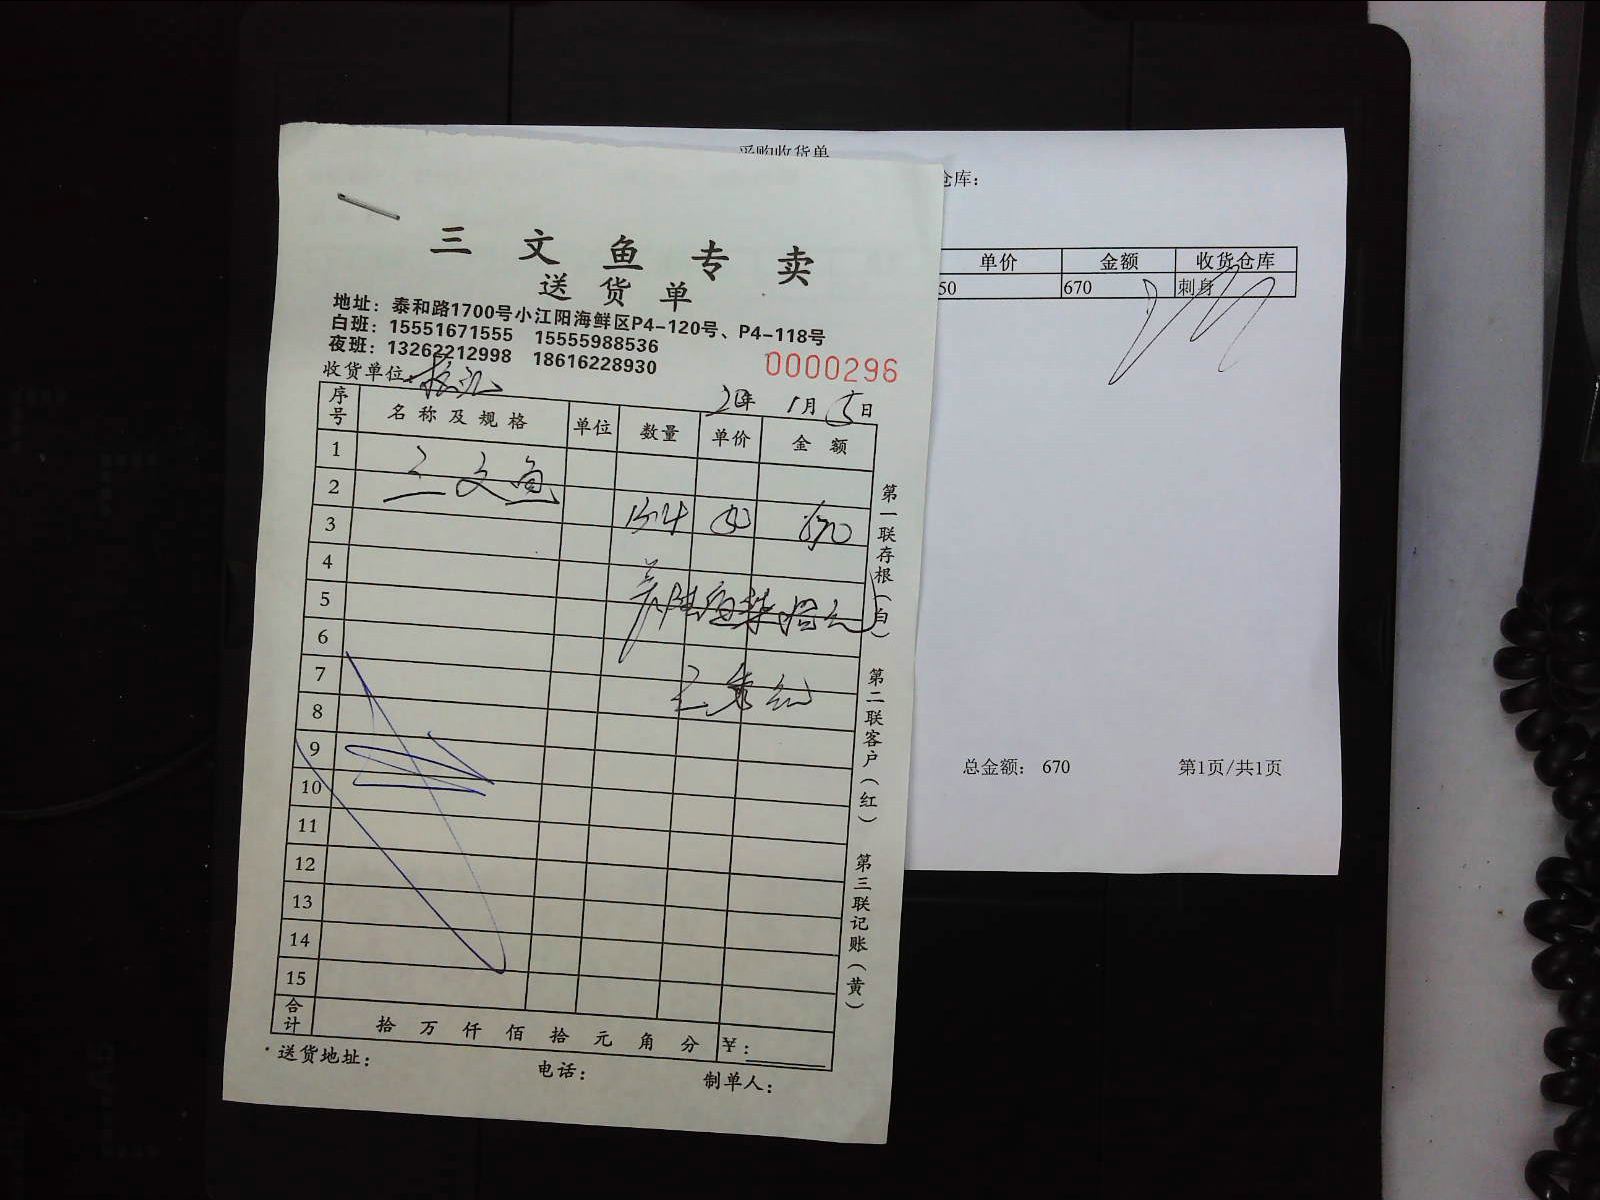 三文鱼专卖
送货单
地址：泰和路1700号小江阳海鲜区P4-120号、P4-118号
白班：15551671555 15555988536
夜班：13262212998 18616228930
0000296
收货单位
年 1月 5日
序号 名称及规格 单位 数量 单价 金额
1
2 三文鱼
3 13.4 50 670
4
5 陆佰柒拾元
6
7
8
9
10
11
12
13
14
15
合计 拾 万 仟 佰 拾 元 角 分 ¥：
送货地址： 电话： 制单人：
第一联存根（白） 第二联客户（红） 第三联记账（黄）
采购收货单
仓库：
单价 金额 收货仓库
50 670 刺身
总金额： 670 第1页/共1页